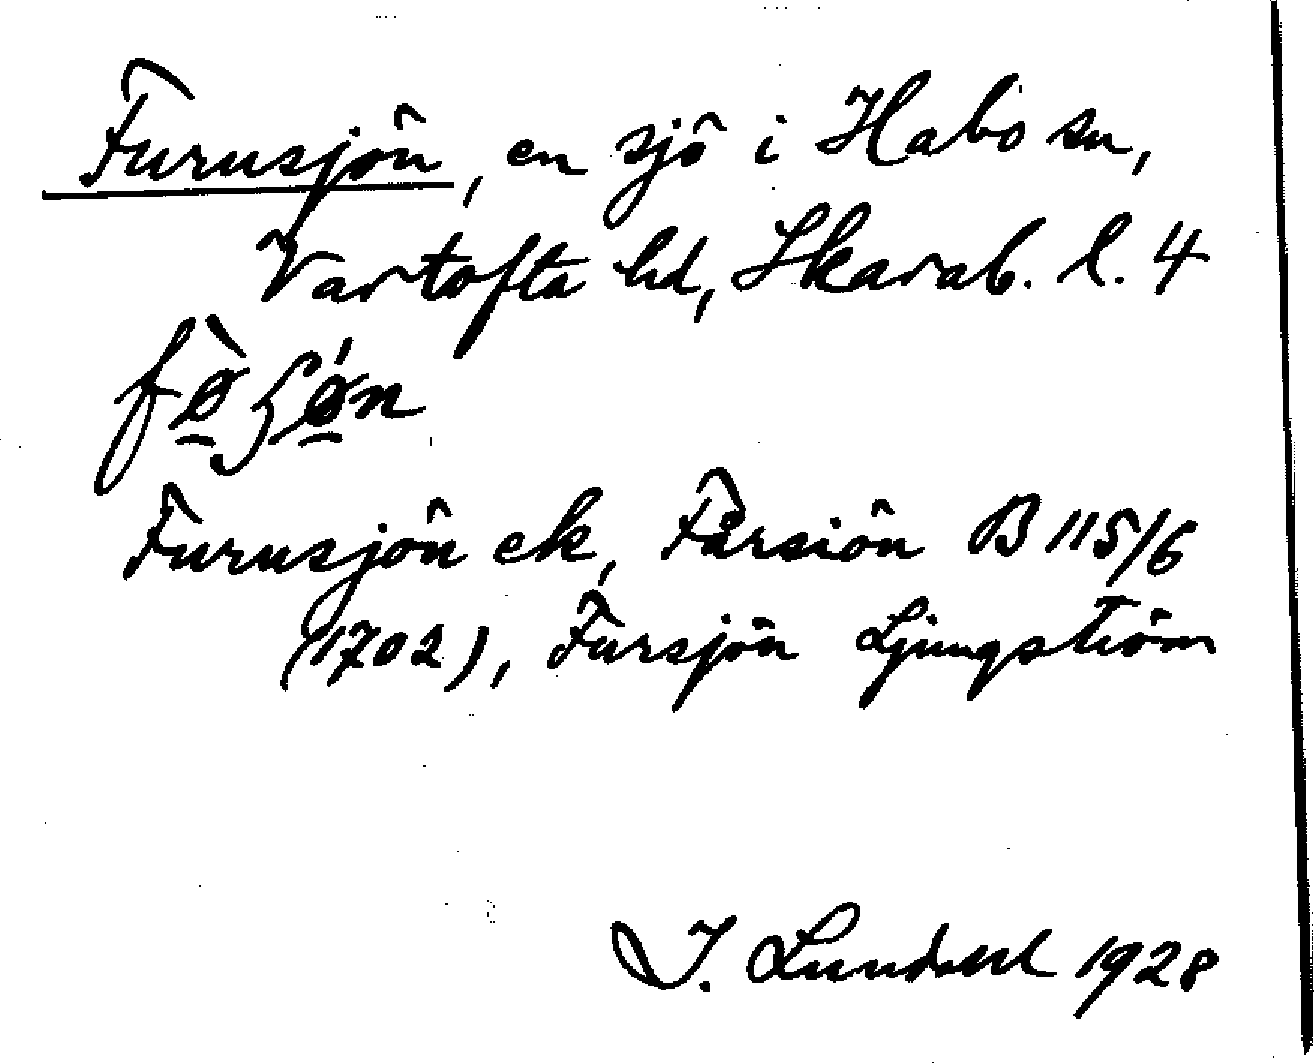 Furusjön, en sjö i Habo sn,
Vartofta hd, Skarab. l. 4
Furusjön ek, Fårsiön B 115/6
(1702), Fursjön Ljungström
I. Lundahl 1928